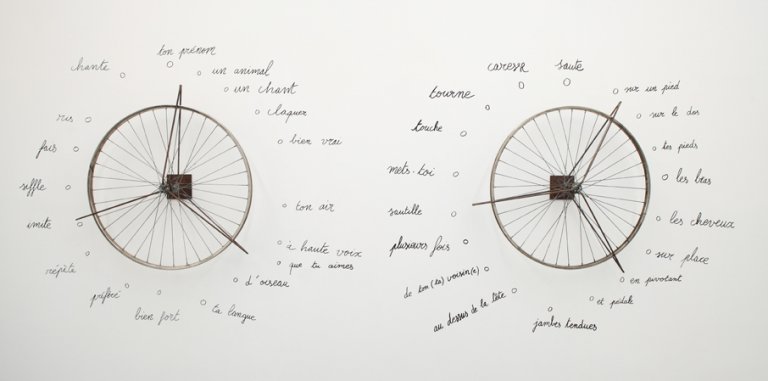 ton prénom
un animal
un chant
claquer
bien vrai
ton air
à haute voix
que tu aimes
d'oiseau
ta langue
bien fort
préféré
répète
imite
siffle
fais
ris
chante
saute
sur un pied
sur le dos
les pieds
les bras
les cheveux
sur place
en pivotant
et pédale
jambes tendues
au dessus de la tête
de ton (ta) voisin(e)
plusieurs fois
sautille
mets-toi
touche
tourne
caresse